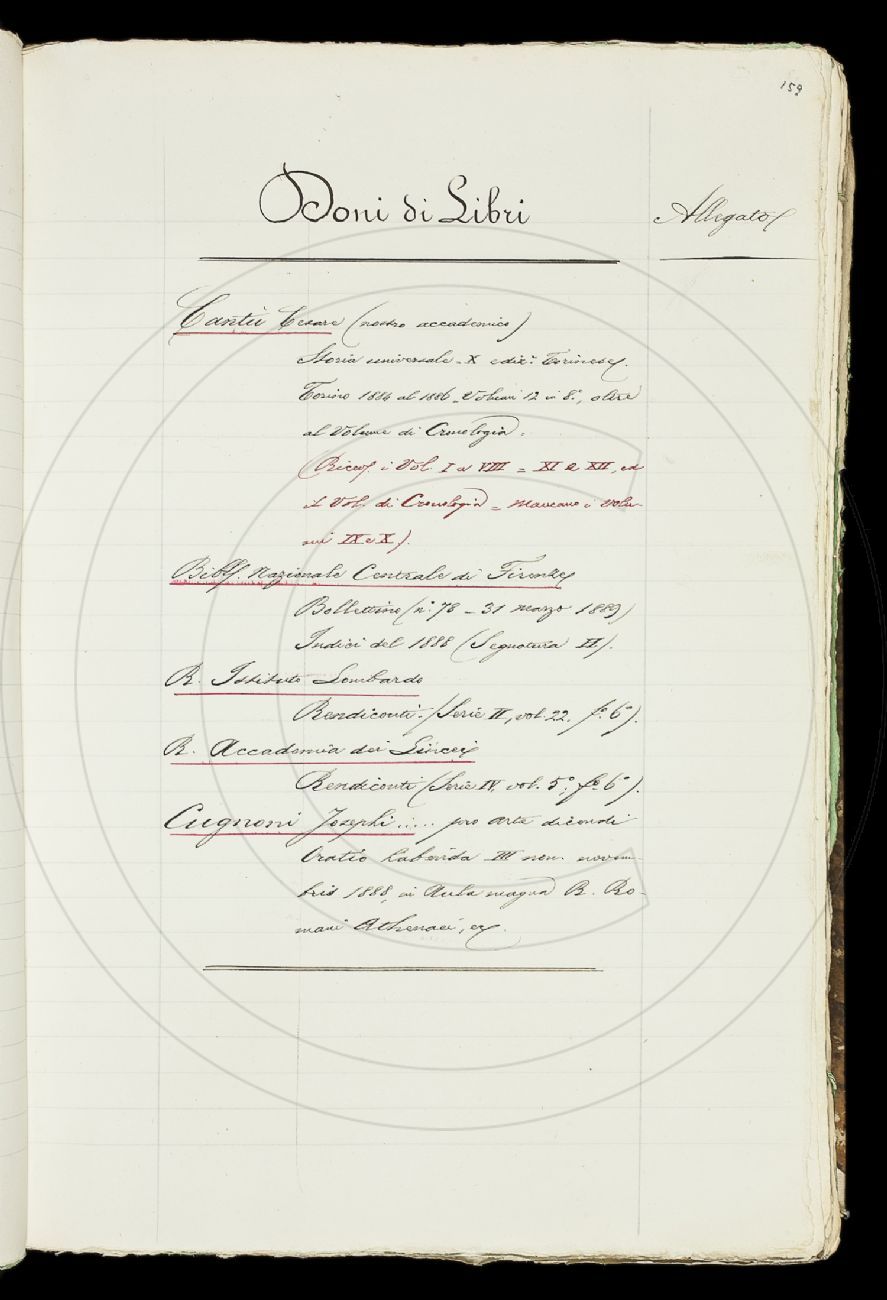 159
Doni di Libri
Allegato
Cantù Cesare (nostro accademico)
Storia universale - X ediz: Torinese.
Torino 1884 al 1886 - Volumi 12 in 8°, oltre
al Volume di Cronologia.
(Ricev. i Vol. I a VIII = XI e XII, ed
il Vol. di Cronologia = Mancano i volu-
mi IX e X).
Bibl. Nazionale Centrale di Firenze
Bollettino (n.° 78 - 31 marzo 1889)
Indici del 1888 (Segnatura II.).
R. Istituto Lombardo
Rendiconti. (Serie II, vol. 22. f.° 6°).
R. Accademia dei Lincei
Rendiconti (Serie IV, vol. 5°, f.° 6°).
Cugnoni Josephi ..... pro arte dicendi
Oratio habenda III non. novem-
bris 1888, in Aula magna R. Ro-
mani Athenaei,